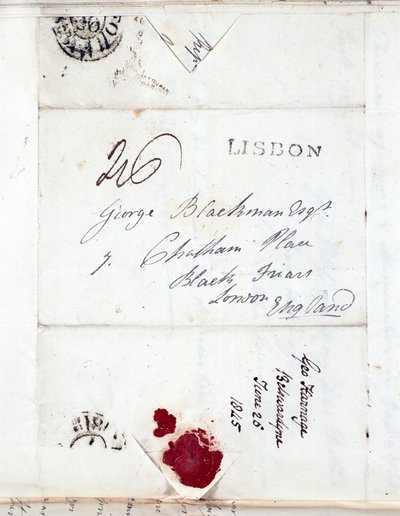 LISBON
2/6
George Blackman Esqr.
7. Chatham Place
Black Friars
London
England
Geo Harnage
Belswardyne
June 25
1845